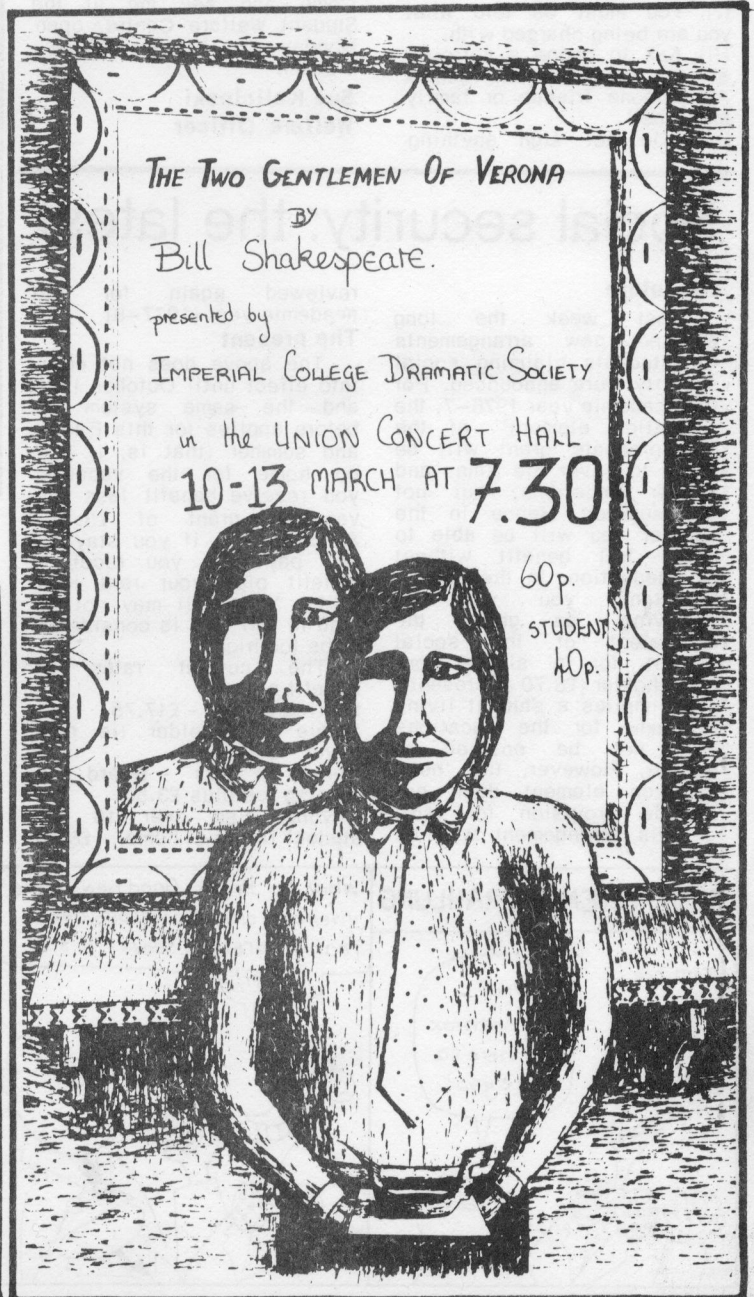 THE TWO GENTLEMEN OF VERONA
BY
Bill Shakespeare.
presented by
IMPERIAL COLLEGE DRAMATIC SOCIETY
in the UNION CONCERT HALL
10-13 MARCH AT 7.30
60p.
STUDENT
40p.